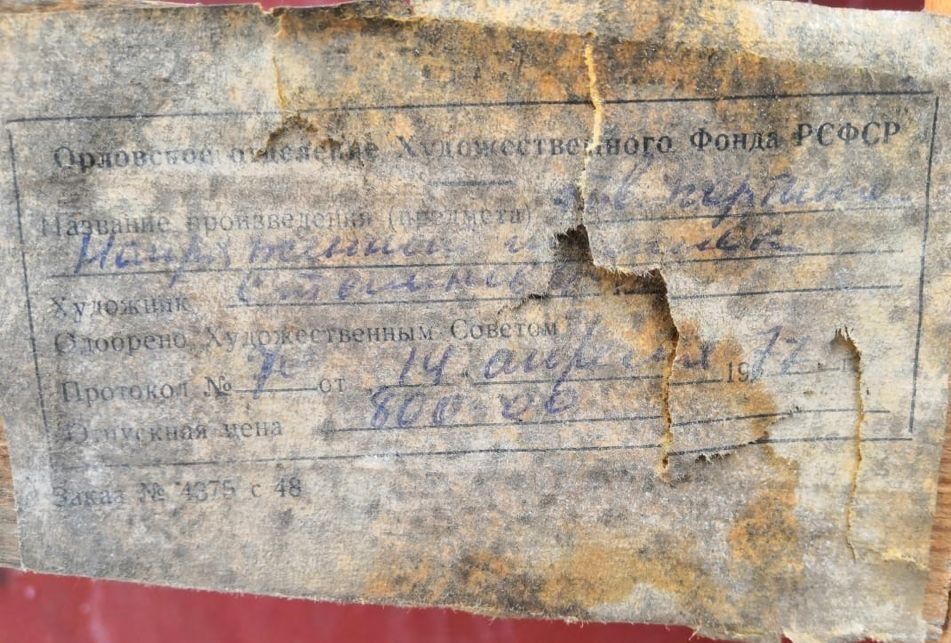 Орловское отделение Художественного Фонда РСФСР
Название произведения (предмета) картина
Художник
Одобрено Художественным Советом
Протокол № от 14 апреля 1977 г.
Отпускная цена 800-00
Заказ № 4375 с 48